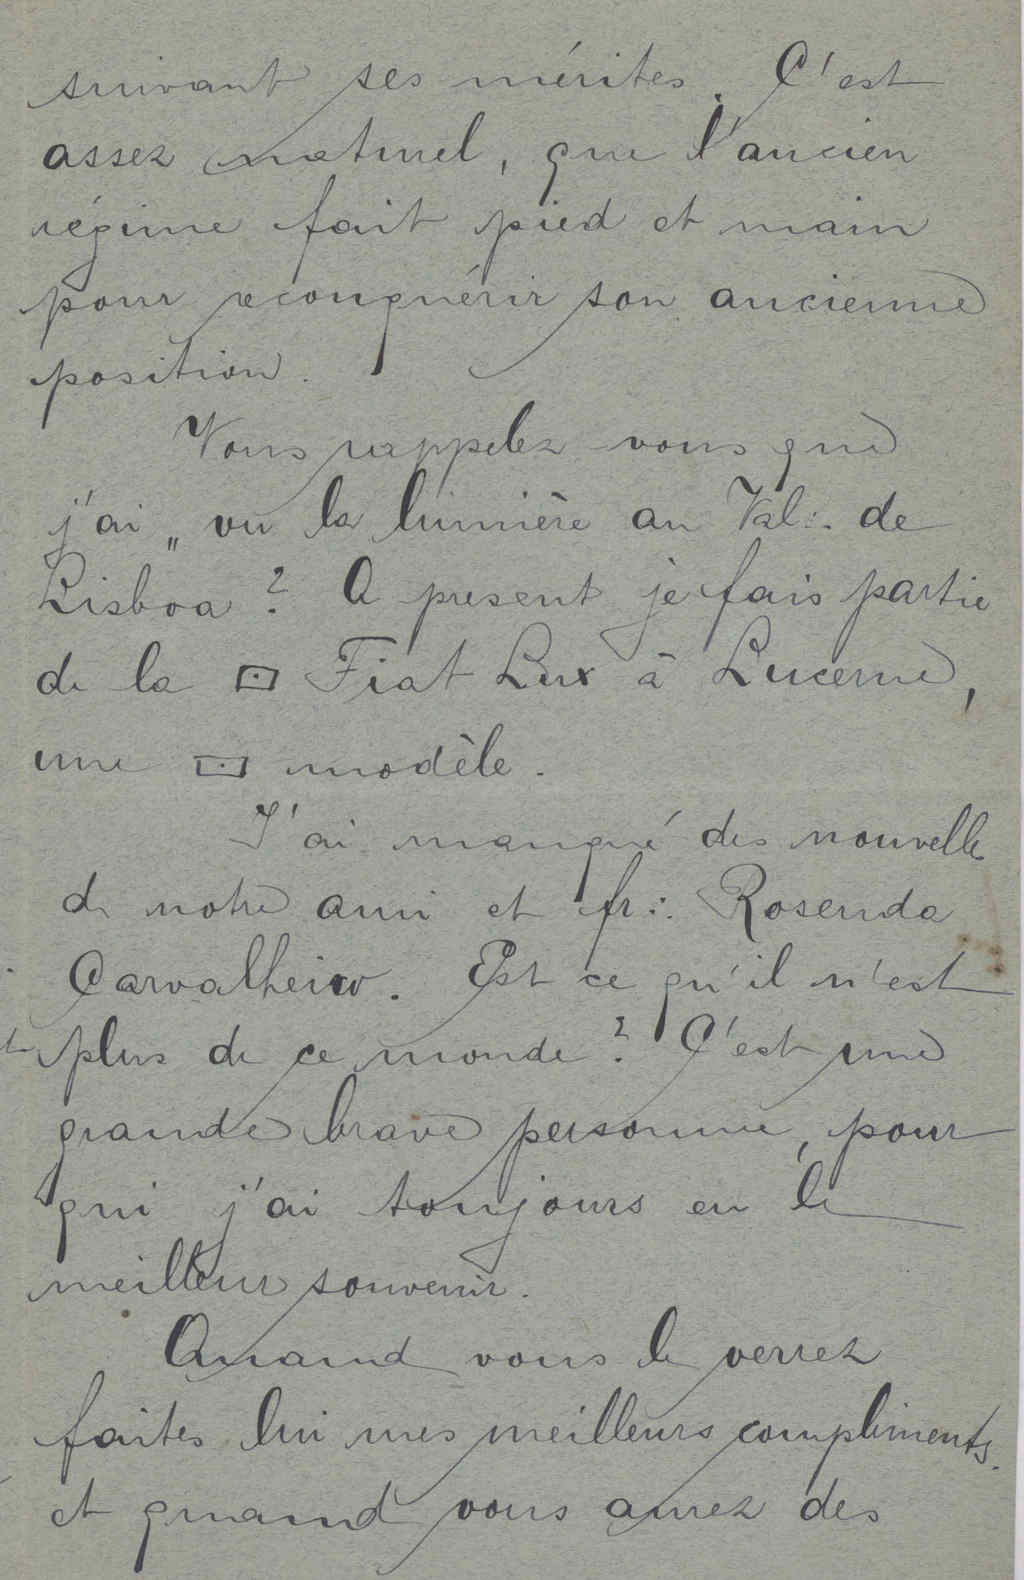 suivant ses mérites. C'est
assez naturel, que l'ancien
régime fait pied et main
pour reconquérir son ancienne
position.
Vous rappelez-vous que
j'ai „ vu la lumière au Val∴ de
Lisboa? A present je fais partie
de la ⊡ Fiat Lux à Lucerne,
une ⊡ modèle.
J'ai manqué des nouvelles
de notre ami et fr∴ Rosenda
Carvalheiro. Est ce qu'il n'est
plus de ce monde? C'est une
grande brave personne, pour
qui j'ai toujours eu le
meilleur souvenir.
Quand vous le verrez
faites lui mes meilleurs compliments.
et quand vous aurez des